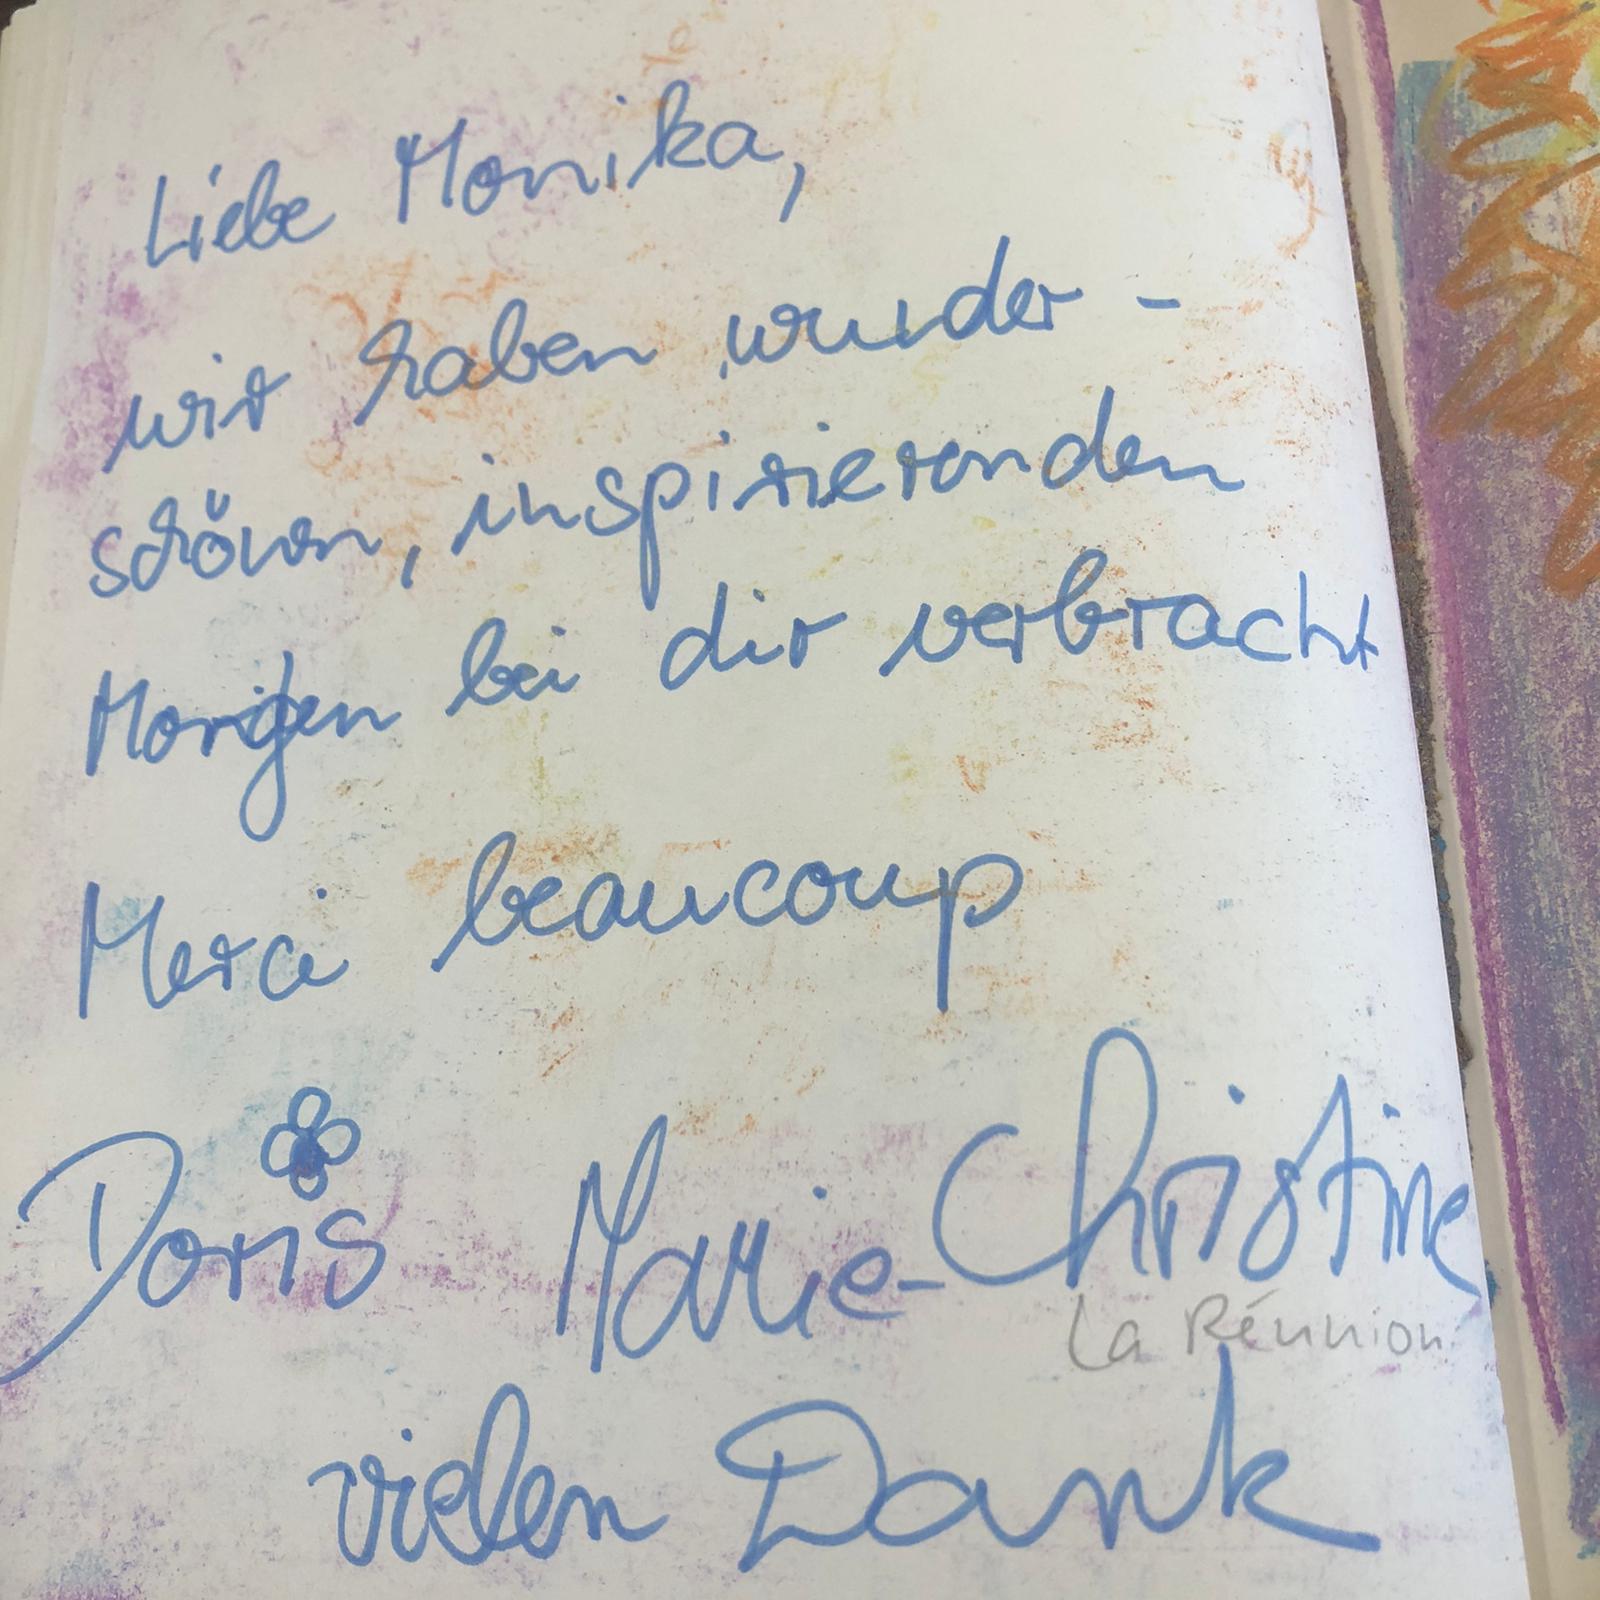 Liebe Monika,
wir haben wunder-
schönen, inspirierenden
Morgen bei dir verbracht
Merci beaucoup
Doris Marie-Christine
La Réunion
vielen Dank